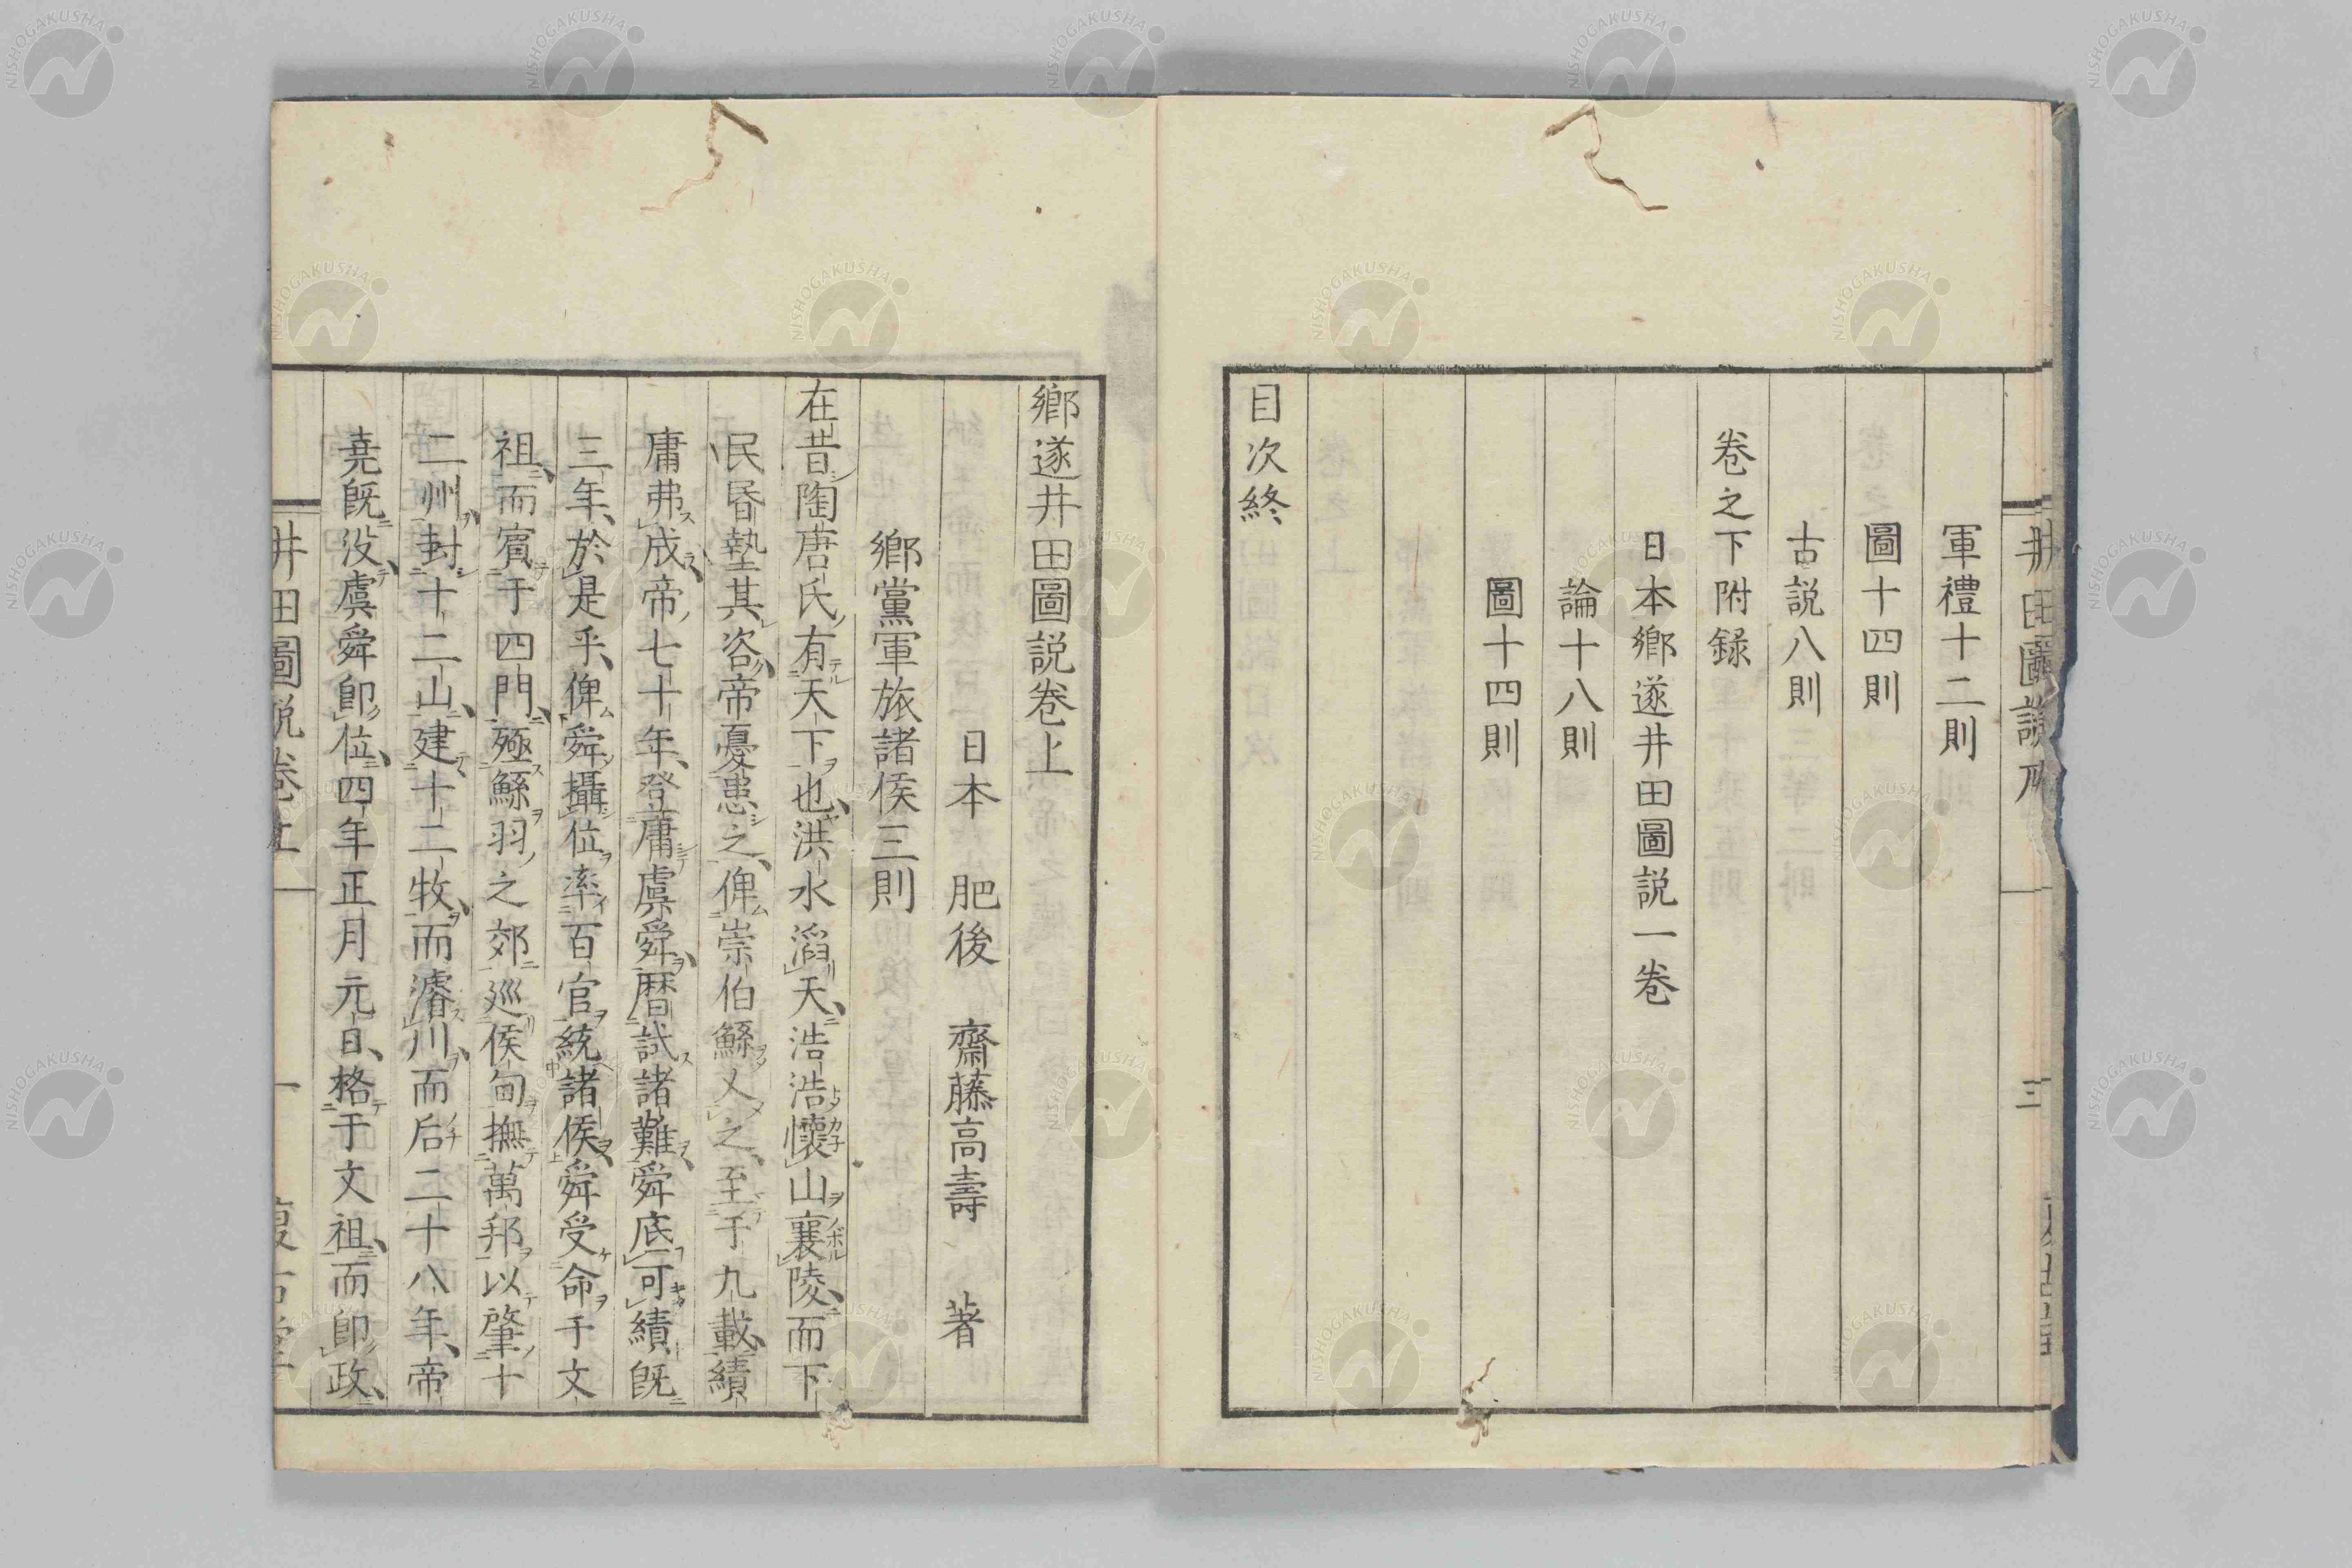 軍禮十二則
圖十四則
古説八則
卷之下附録
日本鄉遂井田圖説一卷
論十八則
圖十四則
目次終
鄉遂井田圖説卷上
日本 肥後 齋藤高壽 著
鄉黨軍旅諸侯三則
在昔陶唐氏有天下也洪水滔天浩浩懷山襄陵而下
民昏墊其咨帝憂患之俾崇伯鯀乂之至于九載績
庸弗成帝七十年登庸虞舜曆試諸難舜底可績既
三年於是乎俾舜攝位率百官統諸侯舜受命于文
祖而賓于四門殛鯀羽之郊巡侯甸撫萬邦以肇十
二州封十二山建十二牧而濬川而后二十八年帝
堯既没虞舜即位四年正月元日格于文祖而即政
井田圖説卷上 一
NISHOGAKUSHA